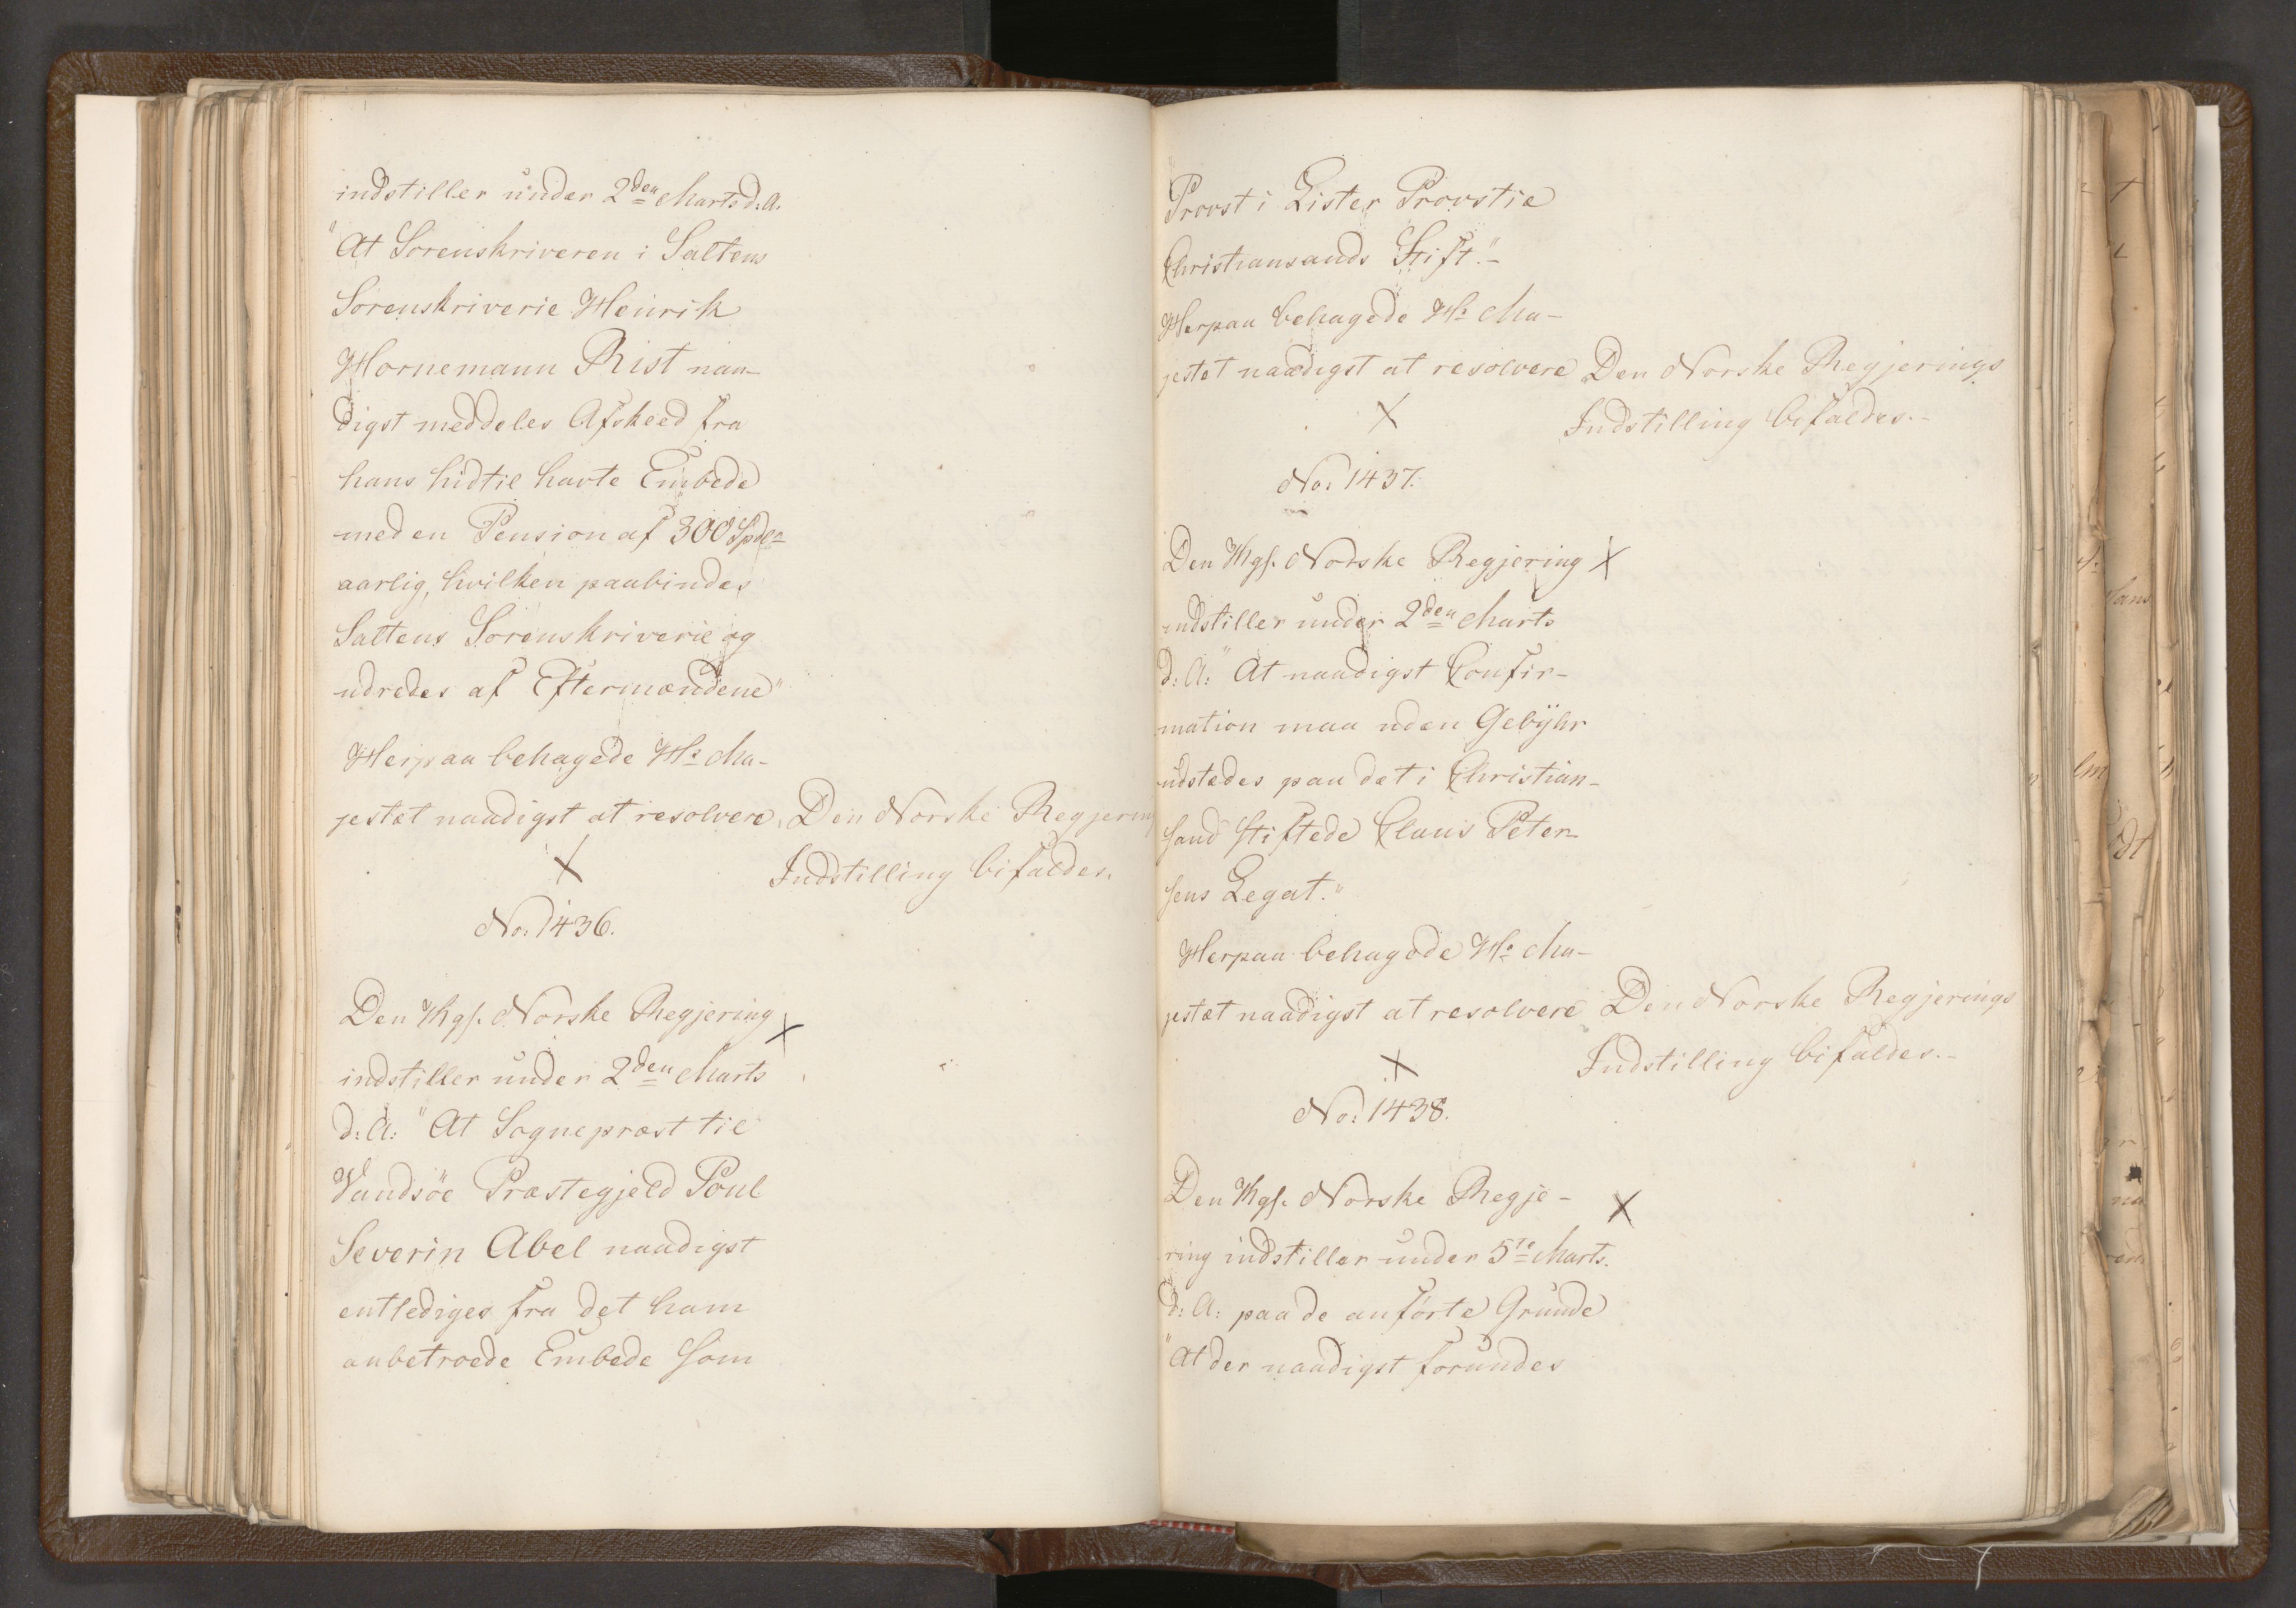 indstiller under 2den Marts d. A.
"At Sorenskriveren i Saltens
Sorenskriverie Henrik
Hornemann Rist naa-
digst meddeles Afskeed fra
hans hidtil havte Embede
med en Pension af 300 Spdlr
aarlig, hvilken paabindes
Saltens Sorenskriverie og
udredes af Eftermændene"
Herpaa behagede Hs Ma-
jestæt naadigst at resolvere. Den Norske Regjering
Indstilling bifaldes.
No: 1436.
Den Kgs. Norske Regjering
indstiller under 2den Marts
d: A: "At Sognepræst til
Vandsöe Præstegjeld Poul
Severin Abel naadigst
entlediges fra det ham
anbetroede Embede som
Provst i Lister Provstie
Christiansands Stift."-
Herpaa behagede Hs Ma-
jestæt naadigst at resolvere Den Norske Regjerings
Indstilling bifaldes.-
No: 1437.
Den Kgs. Norske Regjering
indstiller under 2den Marts
d: A: "At naadigst Confir-
mation maa uden Gebÿhr
udstædes paa det i Christian-
sand stiftede Claus Peter-
sens Legat."
Herpaa behagede Hs Ma-
jestæt naadigst at resolvere Den Norske Regjerings
Indstilling bifaldes.-
No: 1438.
Den Kgs. Norske Regje-
ring indstiller under 5te Marts.
d: A: paa de anførte Grunde
"At der naadigst forundes